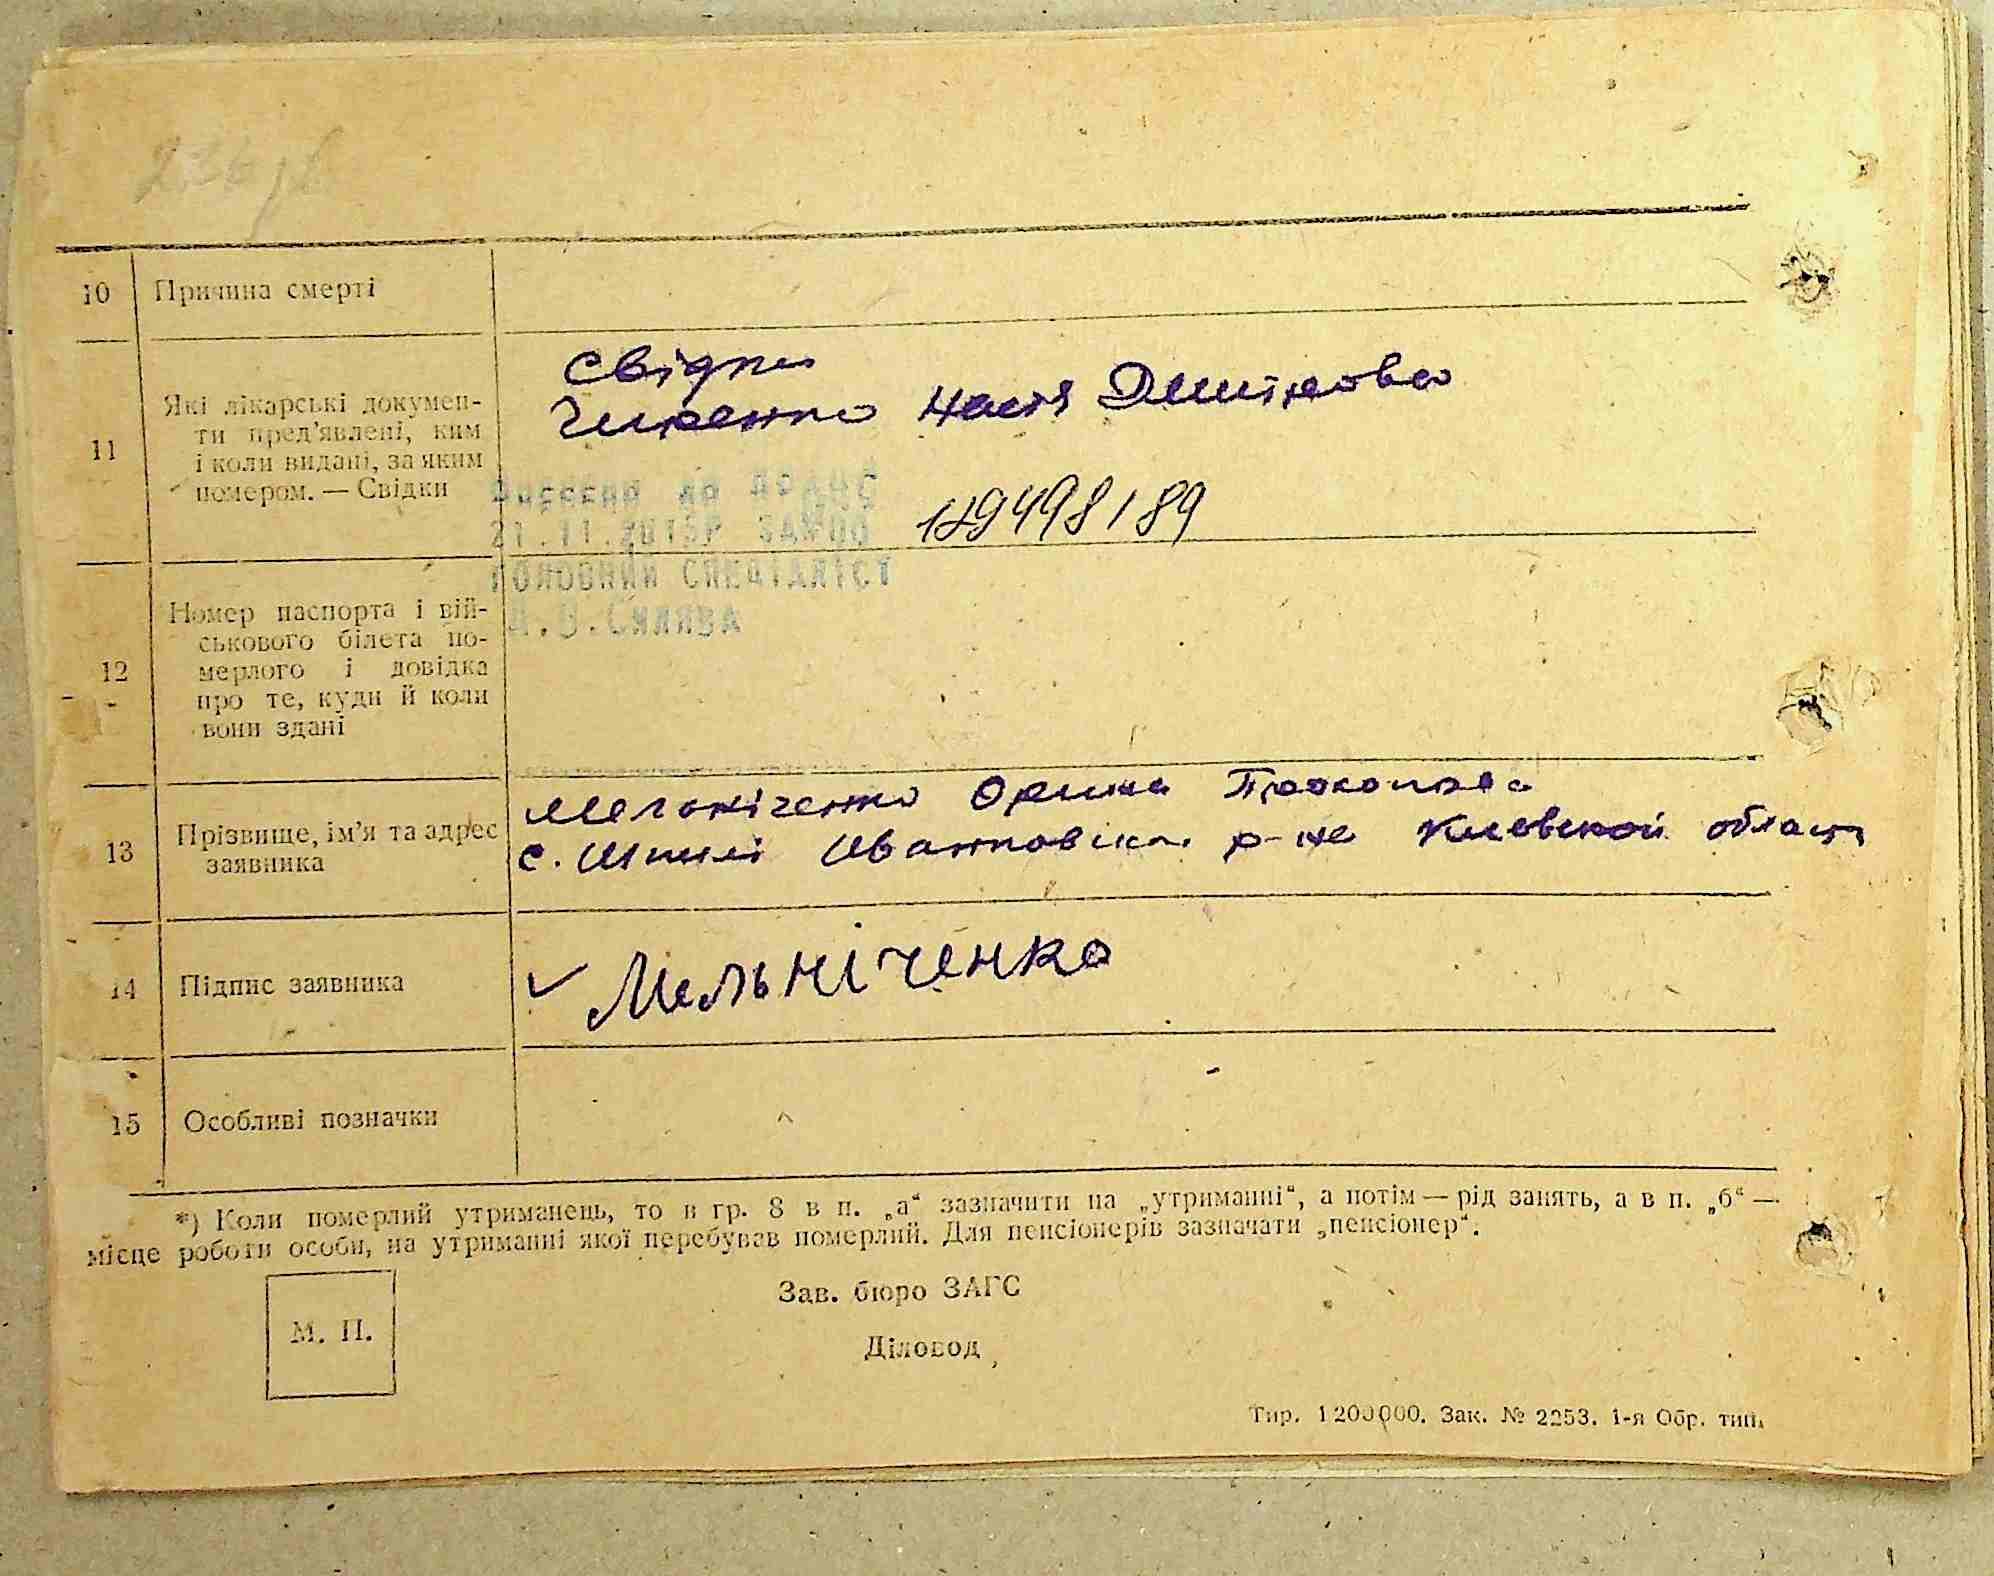 10 Причина смерті
11 Які лікарські докумен-
ти пред'явлені, ким
і коли видані, за яким
номером. — Свідки
Свідки
Настя
Внесено до
21.11.2013р
головний спеціаліст
Силява
129498189
12 Номер паспорта і вій-
ськового білета по-
мерлого і довідка
про те, куди й коли
вони здані
13 Прізвище, ім'я та адрес
заявника
Мельніченко Орина
с. Шпилі р-на Киевской
14 Підпис заявника
Мельніченко
15 Особливі позначки
*) Коли померлий утриманець, то в гр. 8 в п. „а“ зазначити на „утриманні“, а потім — рід занять, а в п. „б“ —
місце роботи особи, на утриманні якої перебував померлий. Для пенсіонерів зазначати „пенсіонер“.
Зав. бюро ЗАГС
М. П.
Діловод
Тир. 1200000. Зак. № 2253. 1-я Обр. тип.